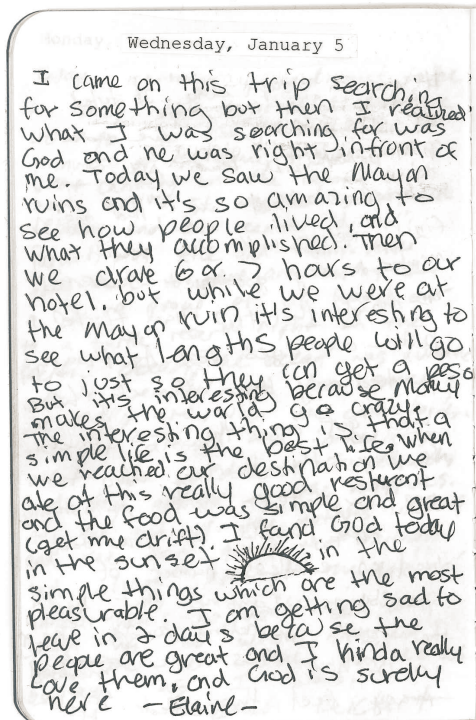 Wednesday, January 5
I came on this trip searching
for something but then I realized
what I was searching for was
God and he was right infront of
me. Today we saw the Mayan
ruins and it's so amazing to
see how people lived and
what they accomplished. Then
we drove 6 or 7 hours to our
hotel. but while we were at
the Mayan ruin it's interesting to
see what lengths people will go
to just so they can get a peso
But it's interesting because Money
makes the world go crazy.
The interesting thing is that a
simple life is the best life. when
we reached our destination we
ate at this really good resturant
and the food was simple and great
(get my drift) I found God today
in the sunset in the
simple things which are the most
pleasurable. I am getting sad to
leave in 2 days because the
people are great and I kinda really
love them, and God is surely
here - Elaine -